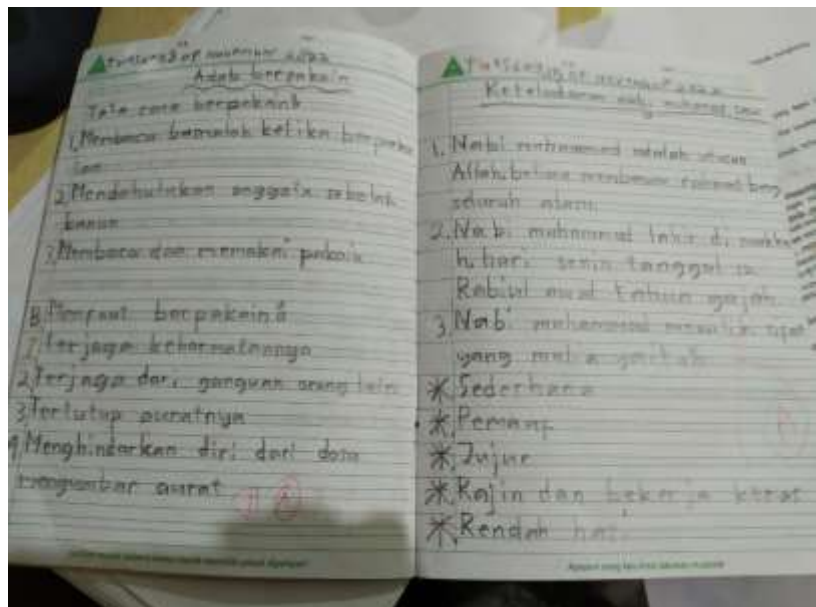 Adab berpakain
Tata cara berpakain
1. Membaca bamalah ketika berpakai
ian
2. Mendahulukan anggota sebelah
kanan
3. Membaca doa memakai pakain
B. Manfaat berpakain
1. Terjaga kehormatannya
2. Terjaga dari ganguan orang lain
3. Tertutup auratnya
4. Menghindarkan diri dari dosa
mengumbar aurat
Keteladanan nabi muhamad saw
1. Nabi muhammad adalah utusan
Allah, beliau membawa rahmat bagi
seluruh alam.
2. Nabi muhammad lahir di makka
h, hari senin tanggal 12
Rabiul awal tahun gajah
3. Nabi muhammad memiliki sipat
yang mulia yaitu
* Sederhana
* Pemaaf
* Jujur
* Rajin dan bekerja keras
* Rendah hati